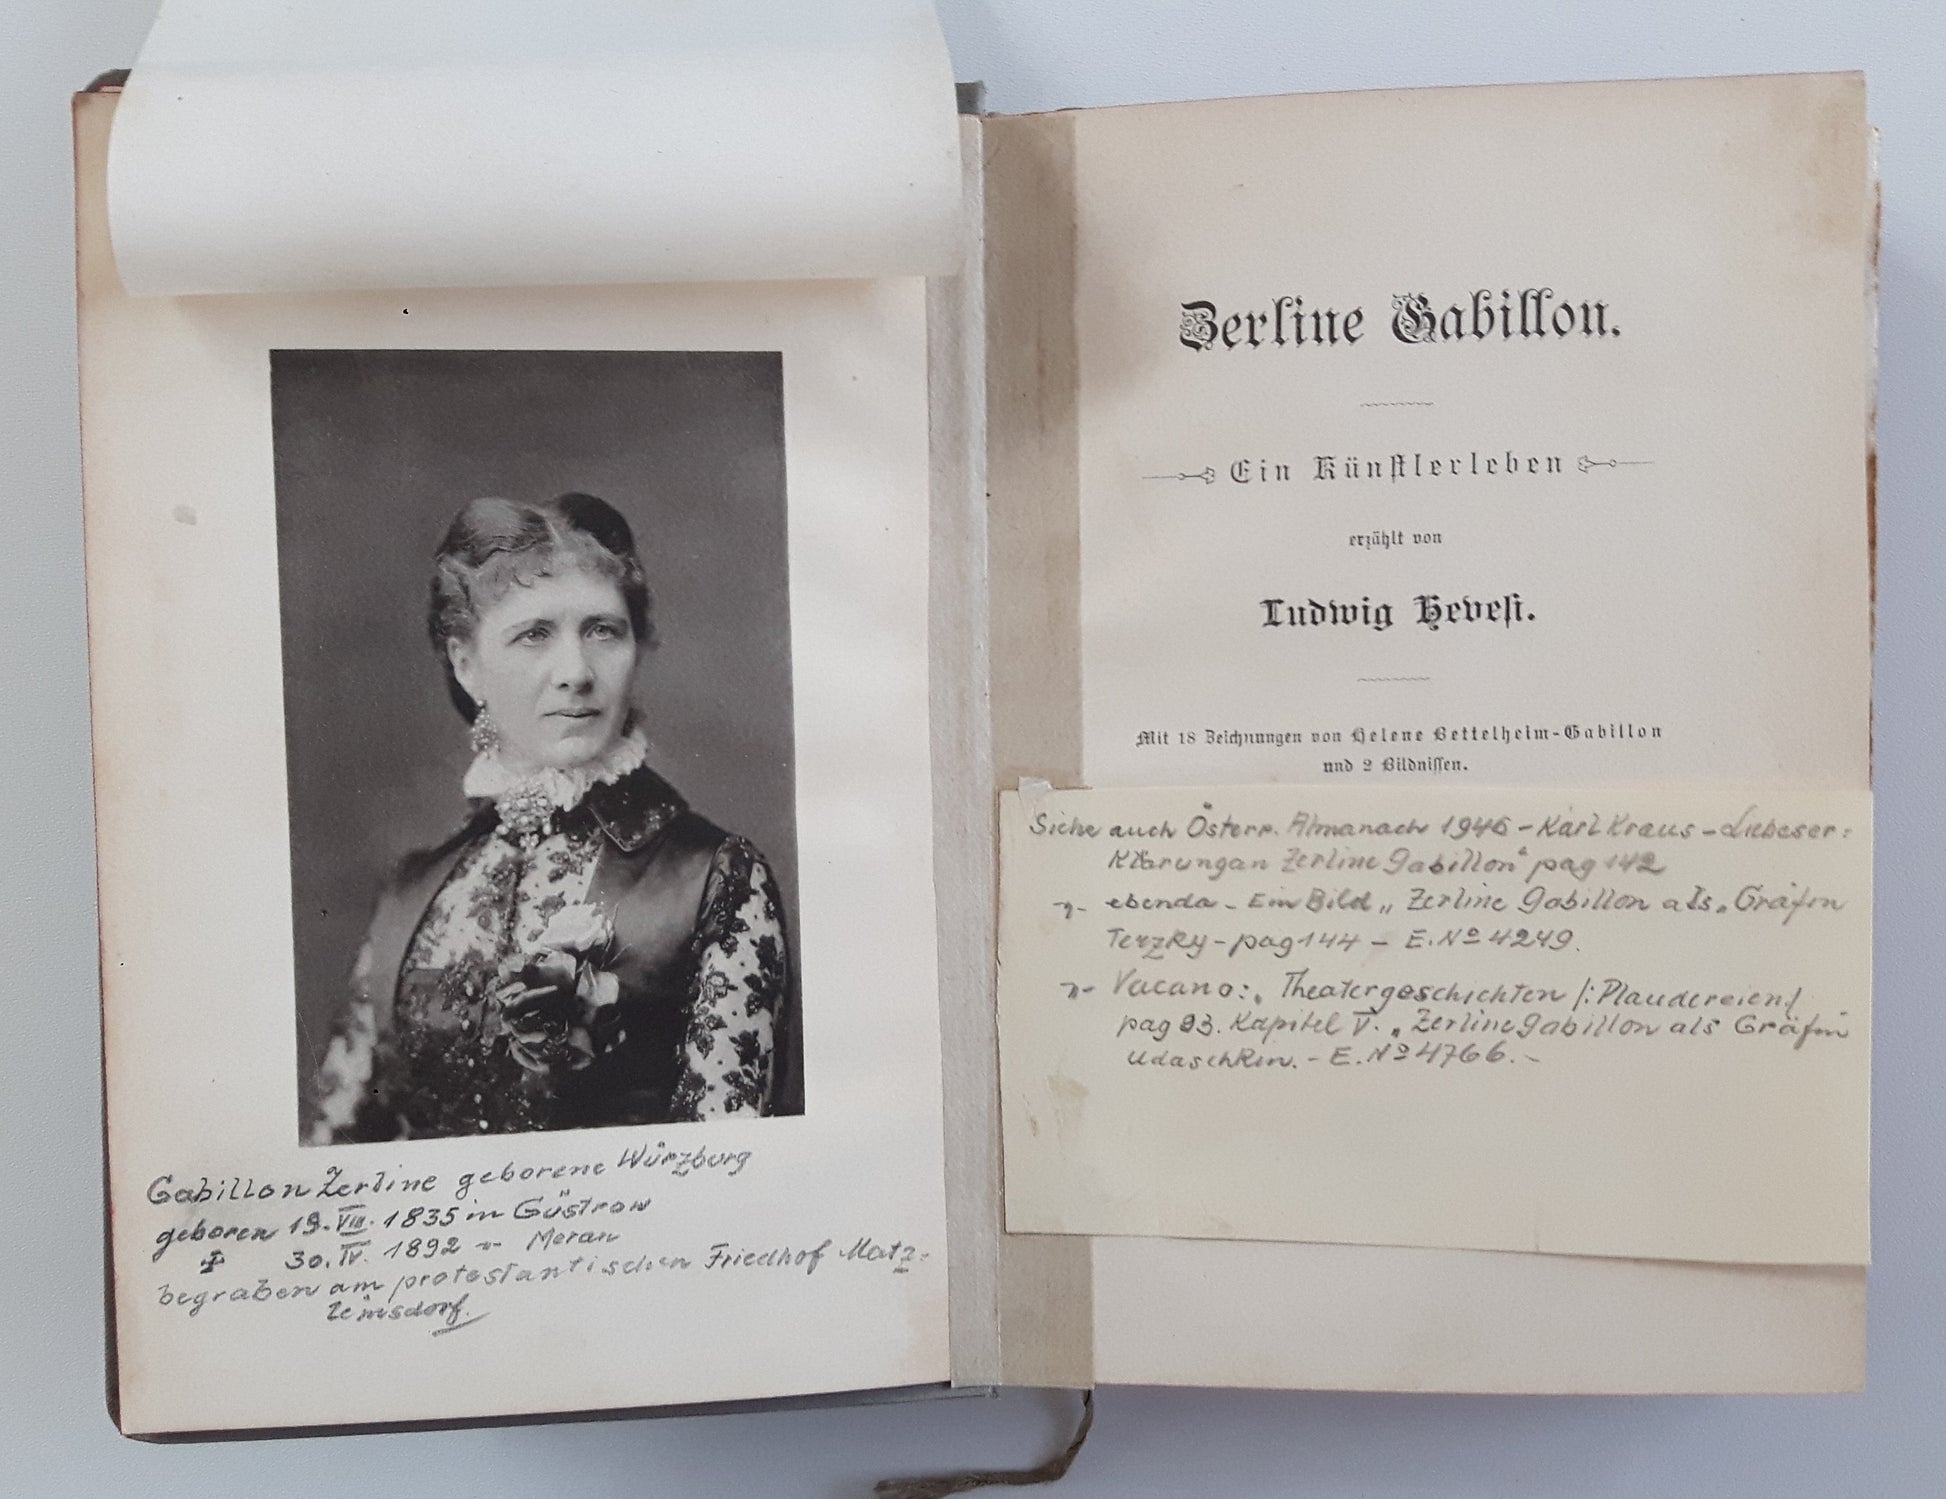 Gabillon Zerline geborene Würzburg
geboren 19. VIII. 1835 in Güstrow
‡ 30. IV. 1892 -"- Meran
begraben am protestantischen Friedhof Matz-
leinsdorf.
Zerline Gabillon.
Ein Künstlerleben
erzählt von
Ludwig Hevesi.
Mit 18 Zeichnungen von Helene Bettelheim-Gabillon
und 2 Bildnissen.
Siehe auch Österr. Almanach 1946 – Karl Kraus – Liebeser:
klärung an Zerline Gabillon" pag 142
-"- ebenda – Ein Bild „Zerline Gabillon als „Gräfin
Terzky – pag 144 – E. No 4249.
-"- Vacano: „Theatergeschichten /:Plaudereien:/
pag 93. Kapitel V. „Zerline Gabillon als Gräfin
Udaschkin. – E. No 4766. –